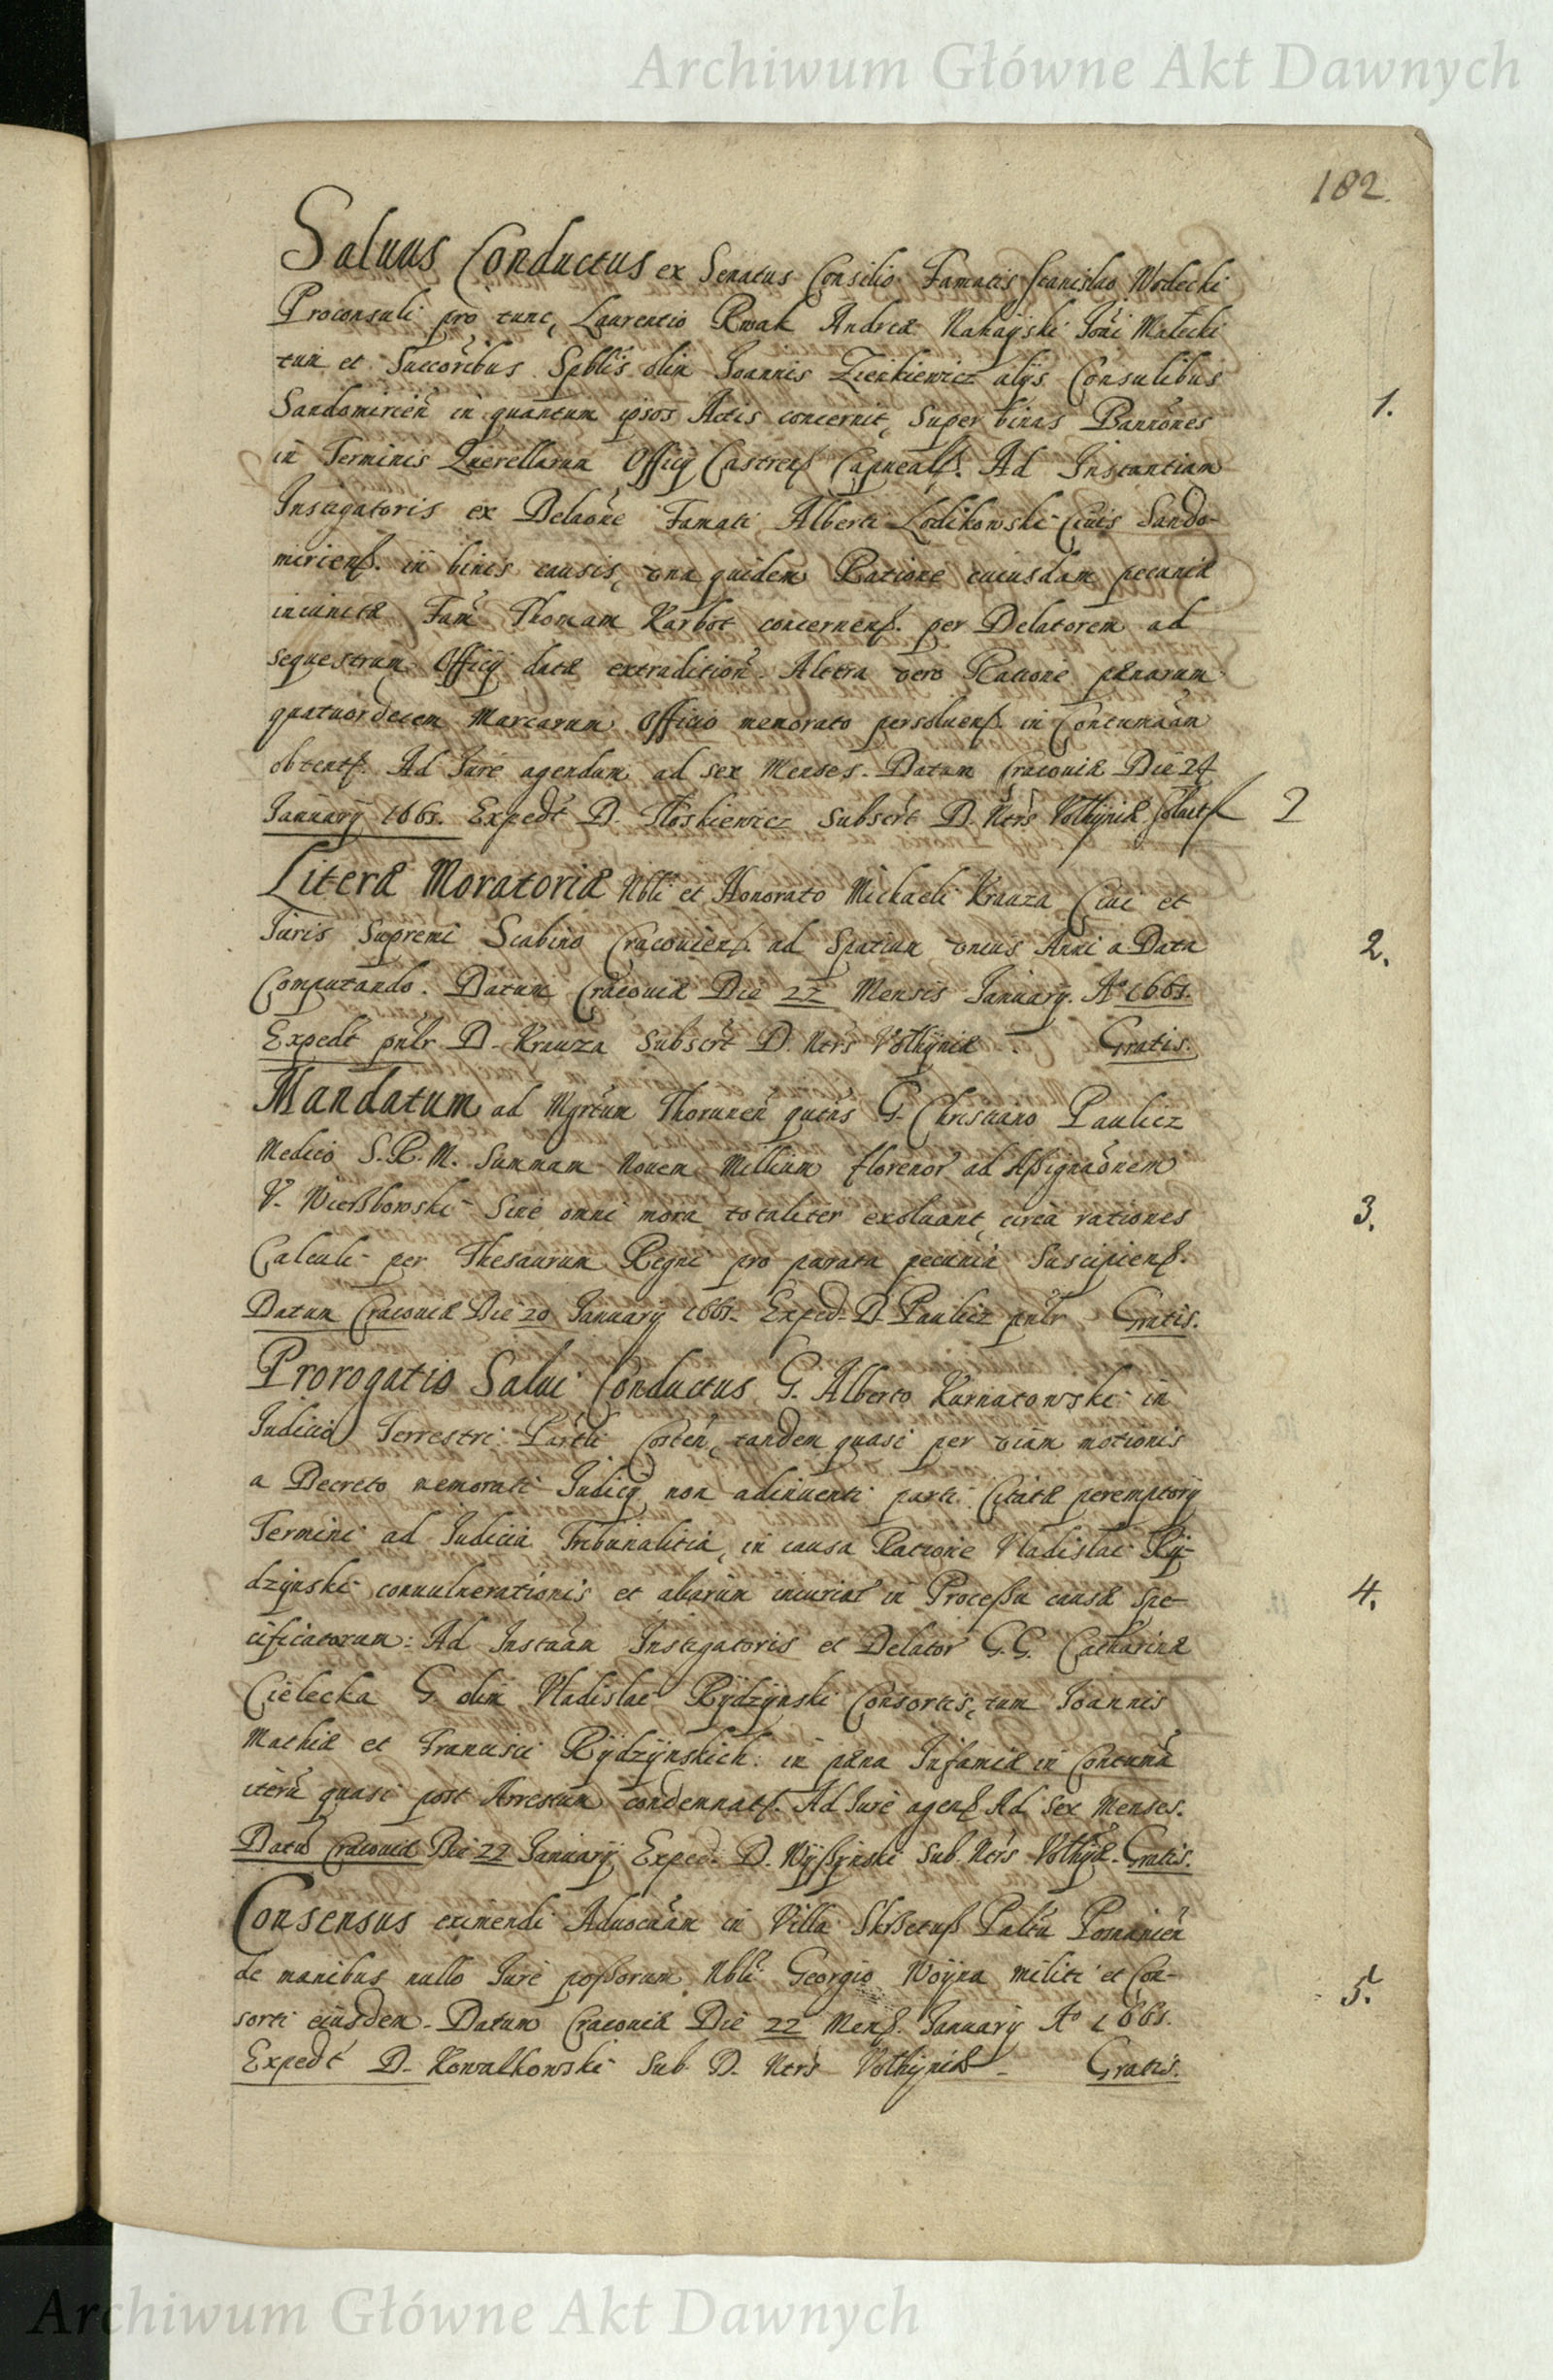 Archiwum Główne Akt Dawnych
182.
Saluus Conductus ex Senatus Consilio Famatis Stanislao Wodecki
Proconsuli pro tunc, Laurentio Rwak Andreæ Nakayski Joni Małecki
tum et Succoribus Spblis olim Joannis Zienkiewicz alijs Consulibus
Sandomirien in quantum ipsos Actis concernit, Super binas Bannones
in Terminis Querellarum Officij Castren Capneal. Ad Instantiam
Instigatoris ex Delaone Famati Alberti Lodikowski Ciuis Sando-
miriens. in binis causis, vna quidem Ratione cuiusdam pecuniæ
Fam Thomam Karbot concernens. per Delatorem ad
sequestrum Officij datæ extradition. Altera vero Ratione pænarum
quatuordecem Marcarum Officio memorato persoluens. in Contumaam
obtent. Ad Jure agendum ad sex Menses. Datum Cracouiæ Die 24
January 1661. Expedt D. Subscrt D. Ntrs Volhyniæ
1.
Literæ Moratoriæ Nbli et Honorato Michaeli Krauza Ciui et
Juris Supremi Scabino Cracouiens. ad Spatium vnius Anni a Data
Computando. Datum Cracouiæ Die 22 Mensis January. Ao 1661.
Expedt pnlr D. Krauza Subscrt D. Ntrs Volhyniæ. Gratis.
2.
Mandatum ad Mgrtum Thorunen G. Christiano Paulicz
Medico S. R. M. Summam Nouem Millium florenor ad Assignaonem
V. Wierßbowski Sine omni mora totaliter exoluant, circa rationes
Calculi per Thesaurum Regni pro parata pecunia Suscipiens.
Datum Cracouiæ Die 20 January 1661. Exped. D. Paulicz pnlr Gratis.
3.
Prorogatio Salui Conductus G. Alberto Karnatowski in
Judicio Terrestri Costen, tandem quasi per viam motionis
a Decreto memorati Judicij non adinuenti parti Citatæ peremptorij
Termini ad Judicia Tribunalitia, in causa Ratione Vladislai Ry-
dzynski conuulnerationis et aliarum iniuriar in Processu causæ Spe-
cificatorum: Ad Instaam Instigatoris et Delator G. G. Catharinæ
Cielecka G. olim Vladislai Rydzynski Consortis, tum Joannis
Mathiæ et Francisci Rydzynskich: in pæna Infamiæ in Contuma
iteru quasi post Arrestum condemnat. Ad Jure agens Ad Sex Menses.
Datu Cracouiæ Die 22 January Exped. D. Wyssynski Sub. Ntrs Volhyæ. Gratis.
4.
Consensus eximendi Aduocaam in Villa Paltu Posnanien
de manibus nullo Jure possorum Nbli Georgio Woyna militi et Con-
sorti eiusdem. Datum Cracouiæ Die 22 Mens. January Ao 1661.
Expedt D. Kowalkowski Sub D. Ntrs Volhyniæ. Gratis.
5.
Archiwum Główne Akt Dawnych